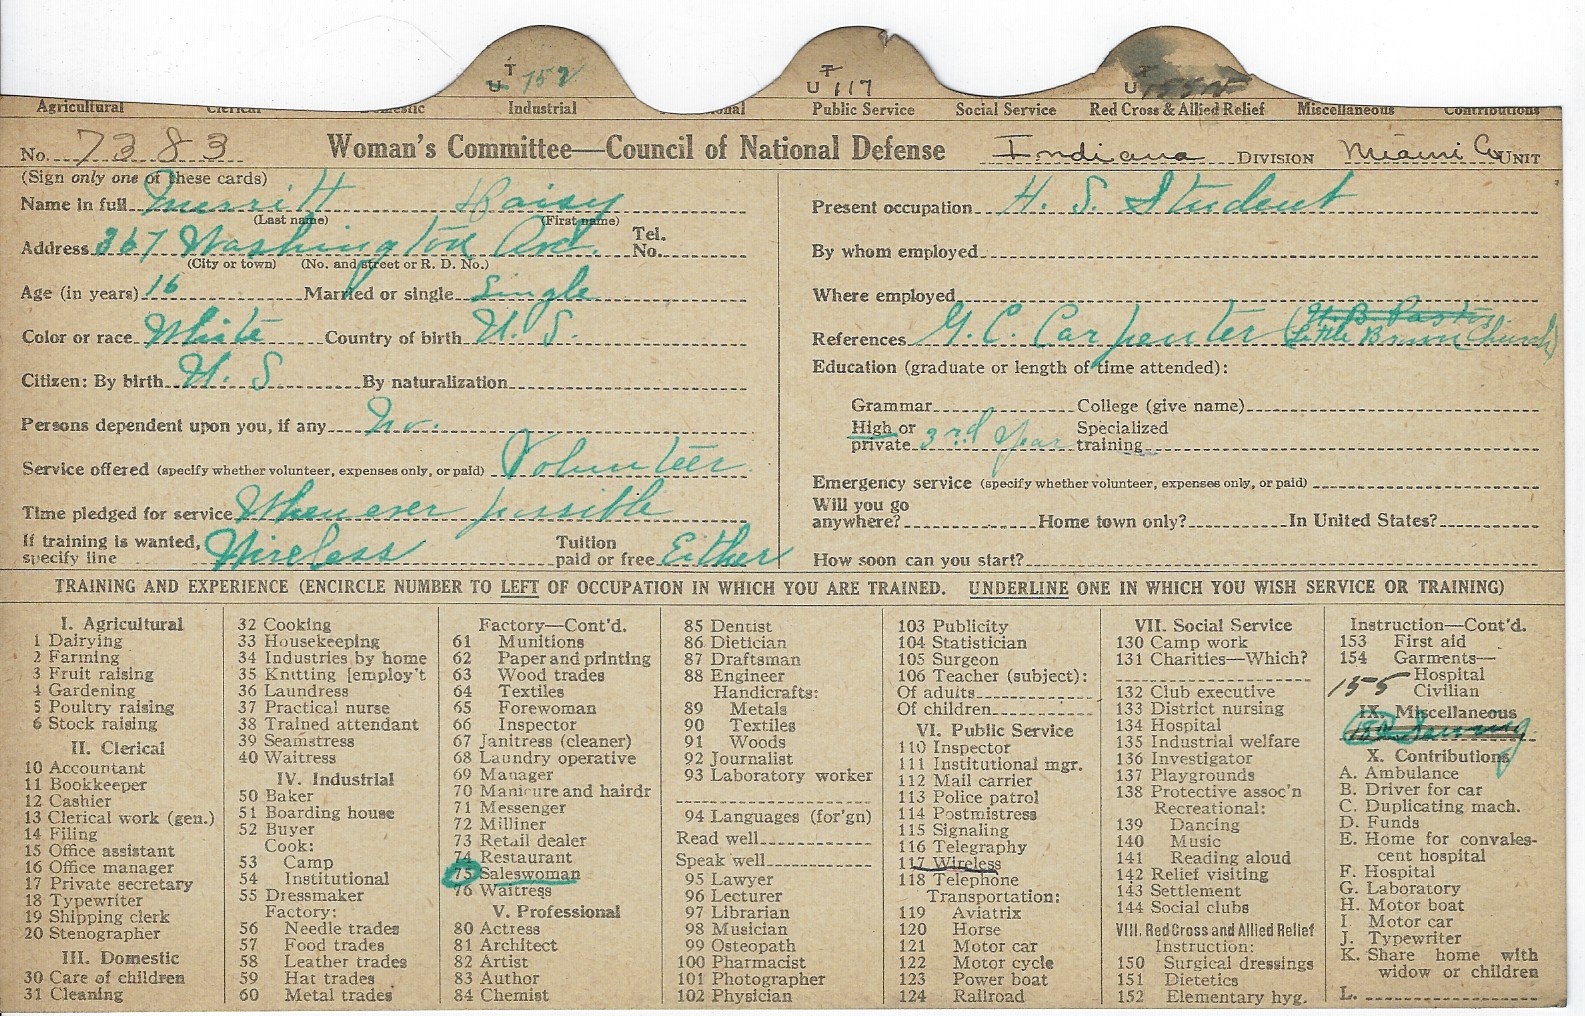 T
U 752
T
U 117
T
U
Agricultural Clerical Domestic Industrial Public Service Social Service Red Cross & Allied Relief Miscellaneous Contributions
No. 7383 Woman's Committee—Council of National Defense Indiana DIVISION Miami Co. UNIT
(Sign only one of these cards)
Name in full Merritt Daisy
(Last name) (First name)
Address 367 Washington Ave. Tel. No.
(City or town) (No. and street or R. D. No.)
Age (in years) 16 Married or single Single
Color or race White Country of birth U. S.
Citizen: By birth U. S By naturalization
Persons dependent upon you, if any No.
Service offered (specify whether volunteer, expenses only, or paid) Volunteer
Time pledged for service Whenever possible
If training is wanted, specify line Wireless Tuition paid or free Either
Present occupation H. S. Student
By whom employed
Where employed
References G. C. Carpenter (U. B. Pastor
Little Brown Church)
Education (graduate or length of time attended):
Grammar College (give name)
High or private 3rd year Specialized training
Emergency service (specify whether volunteer, expenses only, or paid)
Will you go anywhere? Home town only? In United States?
How soon can you start?
TRAINING AND EXPERIENCE (ENCIRCLE NUMBER TO LEFT OF OCCUPATION IN WHICH YOU ARE TRAINED. UNDERLINE ONE IN WHICH YOU WISH SERVICE OR TRAINING)
I. Agricultural
1 Dairying
2 Farming
3 Fruit raising
4 Gardening
5 Poultry raising
6 Stock raising
II. Clerical
10 Accountant
11 Bookkeeper
12 Cashier
13 Clerical work (gen.)
14 Filing
15 Office assistant
16 Office manager
17 Private secretary
18 Typewriter
19 Shipping clerk
20 Stenographer
III. Domestic
30 Care of children
31 Cleaning
32 Cooking
33 Housekeeping
34 Industries by home
35 Knitting [employ't
36 Laundress
37 Practical nurse
38 Trained attendant
39 Seamstress
40 Waitress
IV. Industrial
50 Baker
51 Boarding house
52 Buyer
Cook:
53 Camp
54 Institutional
55 Dressmaker
Factory:
56 Needle trades
57 Food trades
58 Leather trades
59 Hat trades
60 Metal trades
Factory—Cont'd.
61 Munitions
62 Paper and printing
63 Wood trades
64 Textiles
65 Forewoman
66 Inspector
67 Janitress (cleaner)
68 Laundry operative
69 Manager
70 Manicure and hairdr
71 Messenger
72 Milliner
73 Retail dealer
74 Restaurant
75 Saleswoman
76 Waitress
V. Professional
80 Actress
81 Architect
82 Artist
83 Author
84 Chemist
85 Dentist
86 Dietician
87 Draftsman
88 Engineer
Handicrafts:
89 Metals
90 Textiles
91 Woods
92 Journalist
93 Laboratory worker
94 Languages (for'gn)
Read well
Speak well
95 Lawyer
96 Lecturer
97 Librarian
98 Musician
99 Osteopath
100 Pharmacist
101 Photographer
102 Physician
103 Publicity
104 Statistician
105 Surgeon
106 Teacher (subject):
Of adults
Of children
VI. Public Service
110 Inspector
111 Institutional mgr.
112 Mail carrier
113 Police patrol
114 Postmistress
115 Signaling
116 Telegraphy
117 Wireless
118 Telephone
Transportation:
119 Aviatrix
120 Horse
121 Motor car
122 Motor cycle
123 Power boat
124 Railroad
VII. Social Service
130 Camp work
131 Charities—Which?
132 Club executive
133 District nursing
134 Hospital
135 Industrial welfare
136 Investigator
137 Playgrounds
138 Protective assoc'n
Recreational:
139 Dancing
140 Music
141 Reading aloud
142 Relief visiting
143 Settlement
144 Social clubs
VIII. Red Cross and Allied Relief
Instruction:
150 Surgical dressings
151 Dietetics
152 Elementary hyg.
Instruction—Cont'd.
153 First aid
154 Garments—
Hospital
155 Civilian
IX. Miscellaneous
Sewing
X. Contributions
A. Ambulance
B. Driver for car
C. Duplicating mach.
D. Funds
E. Home for convales-
cent hospital
F. Hospital
G. Laboratory
H. Motor boat
I Motor car
J. Typewriter
K. Share home with
widow or children
L.